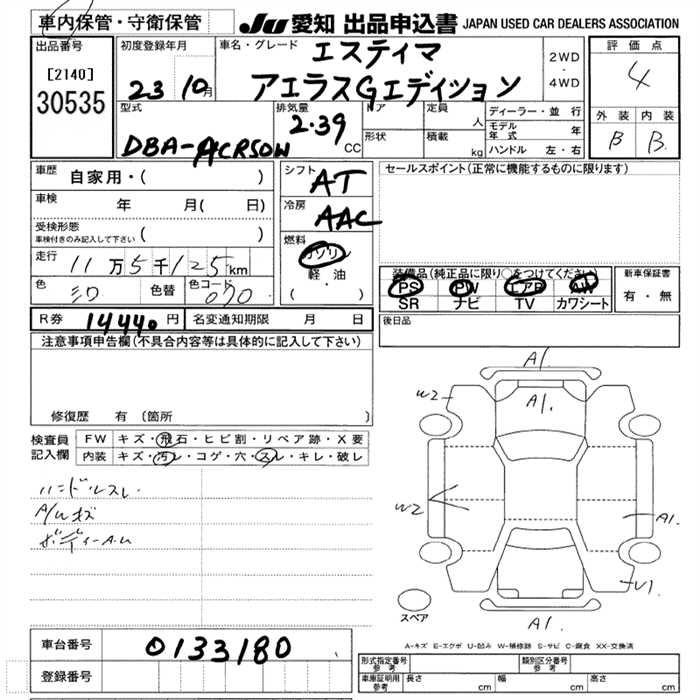 車内保管・守衛保管 JU 愛知 出品申込書 JAPAN USED CAR DEALERS ASSOCIATION
出品番号
[2140]
30535
初度登録年月
23 10月
車名・グレード
エスティマ
アエラスGエディション
2WD
・
4WD
評価点
4
外装 内装
B B
型式
DBA-ACR50W
排気量
2.39
CC
ドア 定員
人
形状 積載
kg
ディーラー・並行
モデル年式 年
ハンドル 左・右
車歴
自家用・( )
車検
年 月( 日)
受検形態
車検付きのみ記入して下さい ( )
走行
11万5千125km
色 色替 色コード 070
シフト
AT
冷房
AAC
燃料
ガソリン
軽油
( ・ )
セールスポイント(正常に機能するものに限ります)
装備品(純正品に限り○をつけてください)
PS PW エアB AW
SR ナビ TV カワシート
新車保証書
有・無
R券 14440 円 名変通知期限 月 日
後日品
注意事項申告欄(不具合内容等は具体的に記入して下さい)
修復歴 有(箇所
検査員記入欄
FW キズ・飛石・ヒビ割・リペア跡・X要
内装 キズ・汚レ・コゲ・穴・スレ・キレ・破レ
ハンドルスレ
A/Wキズ
ボディーA.U
A1.
W2
A1.
W2
A1.
U1
A1.
スペア
A-キズ E-エクボ U-凹み W-補修跡 S-サビ C-腐食 XX-交換済
車台番号
0133180
登録番号
型式指定番号 参考 類別区分番号 参考
車庫証明用 参考 長さ cm 幅 cm 高さ cm